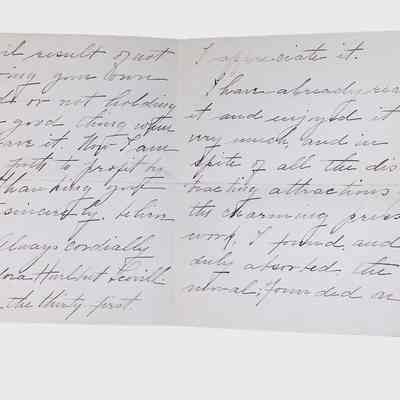 il result of not
ing your own
or not holding
good thing when
ave it. I am
both to profit by
thanking you
sincerely, believe
Always cordially
the thirty-first.
I appreciate it.
I have already rea
it and enjoyed it
very much, and in
spite of all the dis-
tracting attractions
the charming press
work, I found and
duly absorbed the
moral: founded on